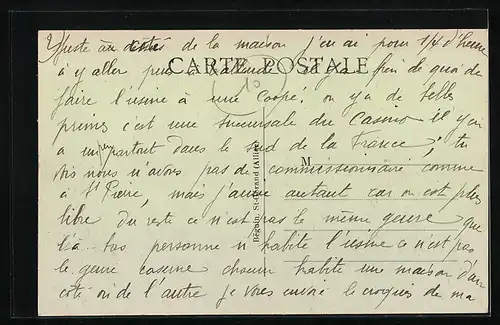 Juste au dessus de la maison j'en ai pour 1/4 d'heure
à y aller puis
CARTE POSTALE
de quoi de
faire l'usine à une Coopé. on y a de belles
primes c'est une succursale du Casino il y'en
a un peu partout dans le sud de la France, tu
vois nous n'avons pas de commissionnaire comme
M
à St Pierre, mais j'aime autant car on est plus
libre Du reste ce n'est pas le même genre que
là-bas personne n'habite l'usine ce n'est pas
le genre caserne chacun habite une maison d'un
coté ou de l'autre je vous envoie le croquis de ma
Béguin, St-Amand (Allier)